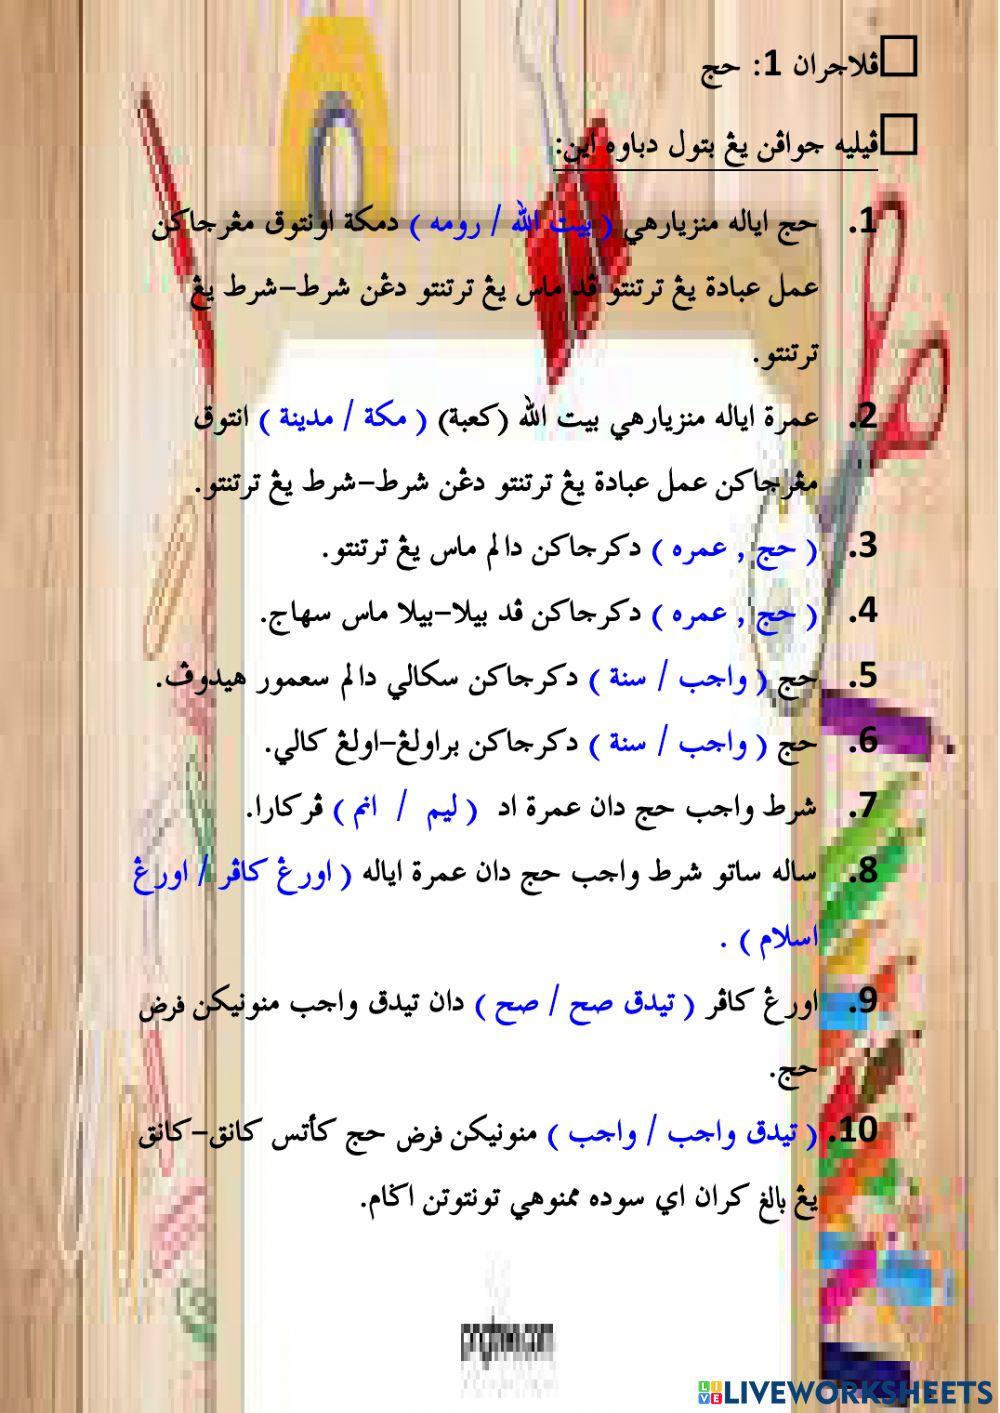 ڤلاجران 1: حج
ڤيليه جواڤن يڠ بتول دباوه اين:
1. حج اياله منزيارهي ( بيت الله / رومه ) دمكة اونتوق مڠرجاكن
عمل عبادة يڠ ترتنتو ڤد ماس يڠ ترتنتو دڠن شرط-شرط يڠ
ترتنتو.
2. عمرة اياله منزيارهي بيت الله (كعبة) ( مكة / مدينة ) انتوق
مڠرجاكن عمل عبادة يڠ ترتنتو دڠن شرط-شرط يڠ ترتنتو.
3. ( حج , عمره ) دكرجاكن دالم ماس يڠ ترتنتو.
4. ( حج , عمره ) دكرجاكن ڤد بيلا-بيلا ماس سهاج.
5. حج ( واجب / سنة ) دكرجاكن سكالي دالم سعمور هيدوڤ.
6. حج ( واجب / سنة ) دكرجاكن براولڠ-اولڠ كالي.
7. شرط واجب حج دان عمرة اد ( ليم / انم ) ڤركارا.
8. ساله ساتو شرط واجب حج دان عمرة اياله ( اورڠ كاڤر / اورڠ
اسلام ) .
9. اورڠ كاڤر ( تيدق صح / صح ) دان تيدق واجب منونيكن فرض
حج.
10. ( تيدق واجب / واجب ) منونيكن فرض حج كأتس كانق-كانق
يڠ بالغ كران اي سوده ممنوهي تونتوتن اݢام.
pngtree.com
LIVEWORKSHEETS